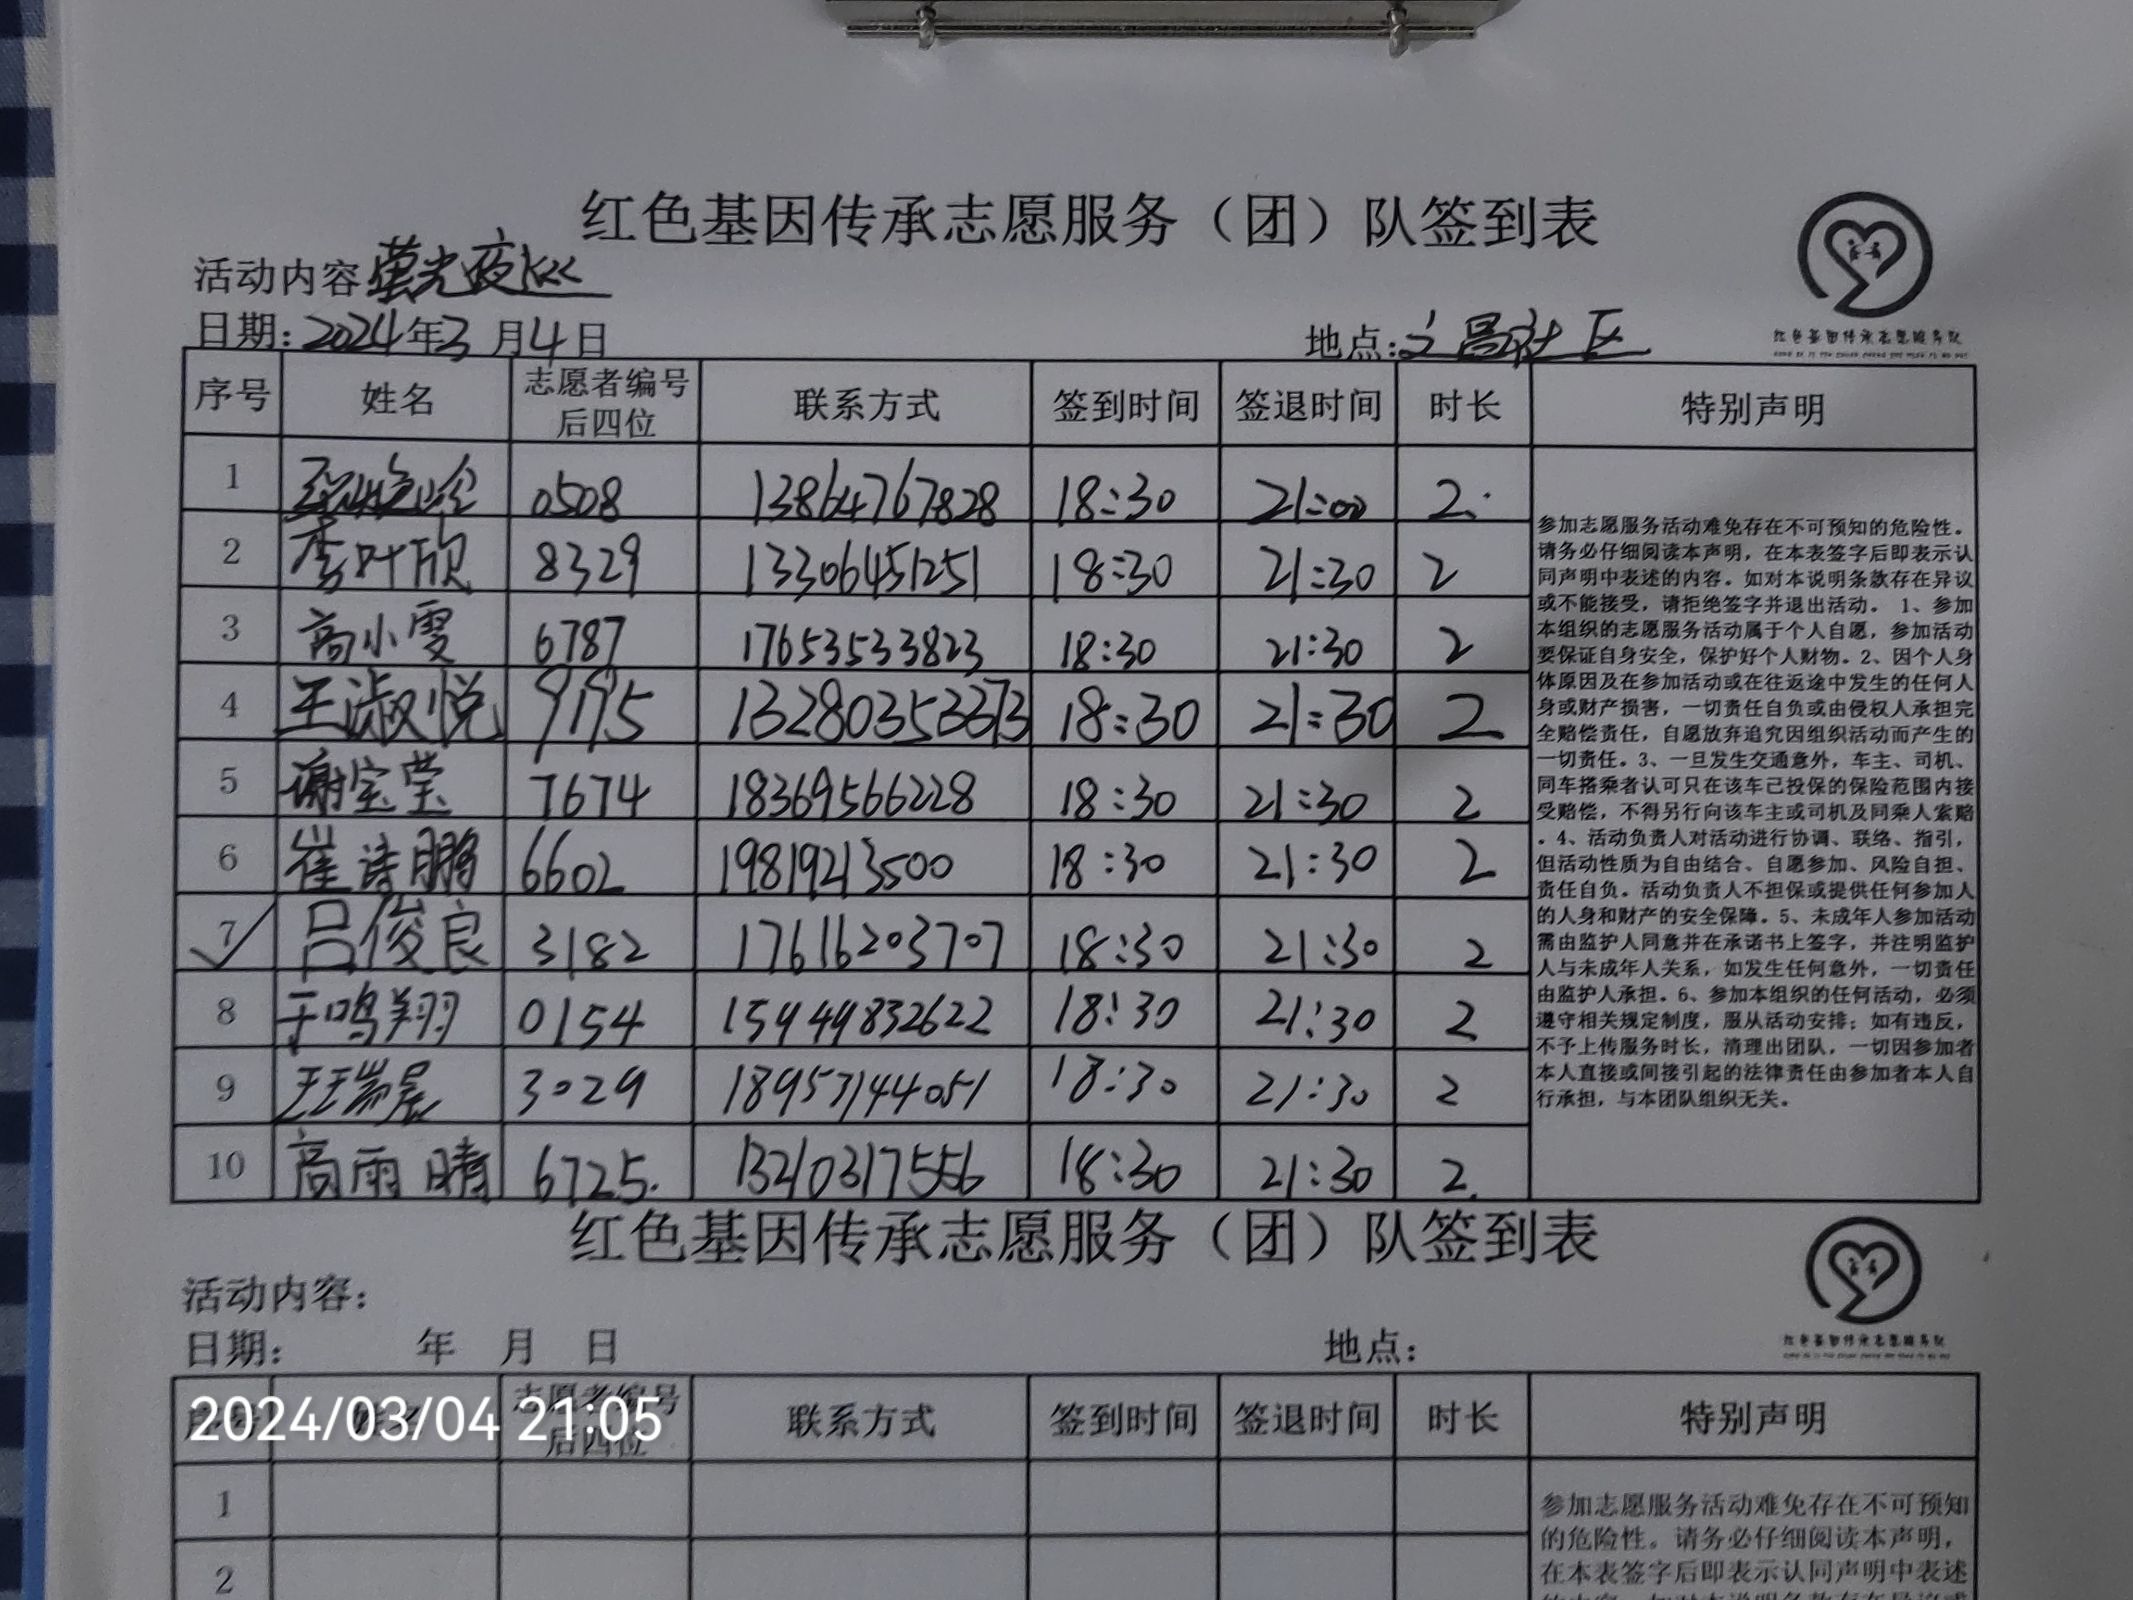 红色基因传承志愿服务（团）队签到表
活动内容 萤光夜巡
日期：2024年3月4日 地点：文昌社区
红色基因传承志愿服务队
序号 姓名 志愿者编号后四位 联系方式 签到时间 签退时间 时长 特别声明
1 0508 13864767828 18:30 21:00 2.
2 李叶欣 8329 13306451251 18:30 21:30 2
3 高小雯 6787 17653533823 18:30 21:30 2
4 王淑悦 9195 13280353373 18:30 21:30 2
5 谢宝莹 7674 18369566228 18:30 21:30 2
6 崔诗鹏 6602 19819213500 18:30 21:30 2
7 吕俊良 3182 17616203707 18:30 21:30 2
8 于鸣翔 0154 15949832622 18:30 21:30 2
9 3029 18957144051 18:30 21:30 2
10 高雨晴 6725. 13210317556 18:30 21:30 2.
参加志愿服务活动难免存在不可预知的危险性。
请务必仔细阅读本声明，在本表签字后即表示认
同声明中表述的内容。如对本说明条款存在异议
或不能接受，请拒绝签字并退出活动。 1、参加
本组织的志愿服务活动属于个人自愿，参加活动
要保证自身安全，保护好个人财物。2、因个人身
体原因及在参加活动或在往返途中发生的任何人
身或财产损害，一切责任自负或由侵权人承担完
全赔偿责任，自愿放弃追究因组织活动而产生的
一切责任。3、一旦发生交通意外，车主、司机、
同车搭乘者认可只在该车已投保的保险范围内接
受赔偿，不得另行向该车主或司机及同乘人索赔
。4、活动负责人对活动进行协调、联络、指引，
但活动性质为自由结合、自愿参加、风险自担、
责任自负。活动负责人不担保或提供任何参加人
的人身和财产的安全保障。5、未成年人参加活动
需由监护人同意并在承诺书上签字，并注明监护
人与未成年人关系，如发生任何意外，一切责任
由监护人承担。6、参加本组织的任何活动，必须
遵守相关规定制度，服从活动安排；如有违反，
不予上传服务时长，清理出团队，一切因参加者
本人直接或间接引起的法律责任由参加者本人自
行承担，与本团队组织无关。
红色基因传承志愿服务（团）队签到表
活动内容：
日期： 年 月 日 地点：
红色基因传承志愿服务队
序号 姓名 志愿者编号后四位 联系方式 签到时间 签退时间 时长 特别声明
2024/03/04 21:05
1
2
参加志愿服务活动难免存在不可预知
的危险性。请务必仔细阅读本声明，
在本表签字后即表示认同声明中表述